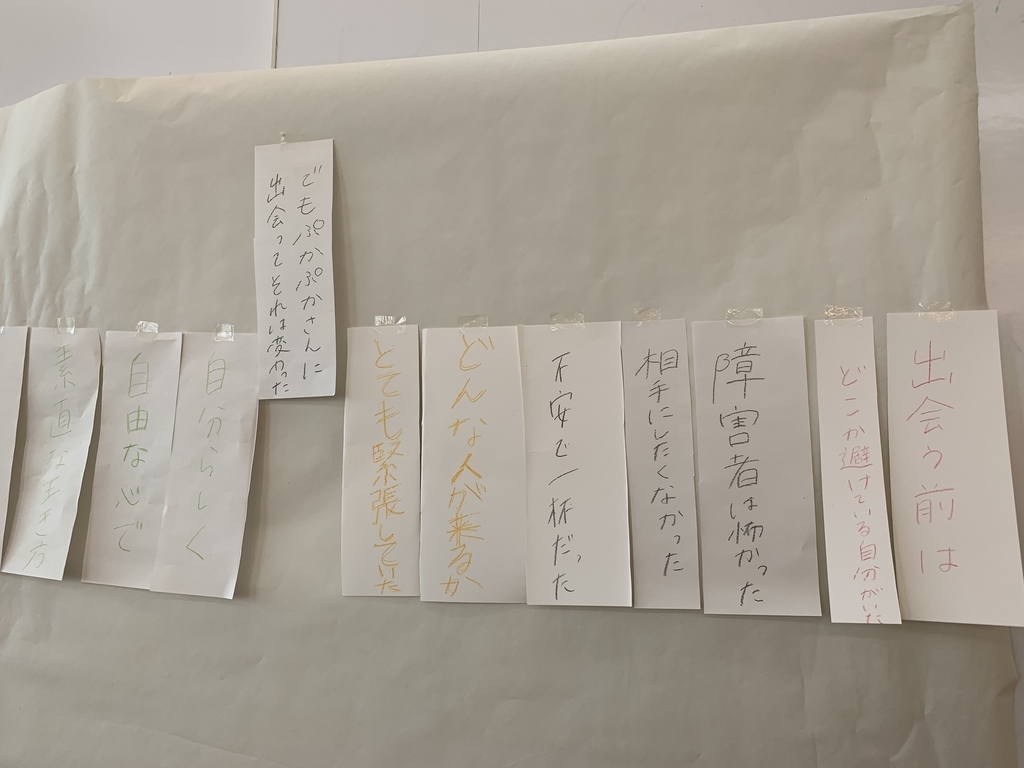 出会う前は
どこか避けている自分がいた
障害者は怖かった
相手にしたくなかった
不安で一杯だった
どんな人が来るか
とても緊張していた
でもぷかぷかさんに
出会ってそれは変わった
自分らしく
自由な心で
素直な生き方